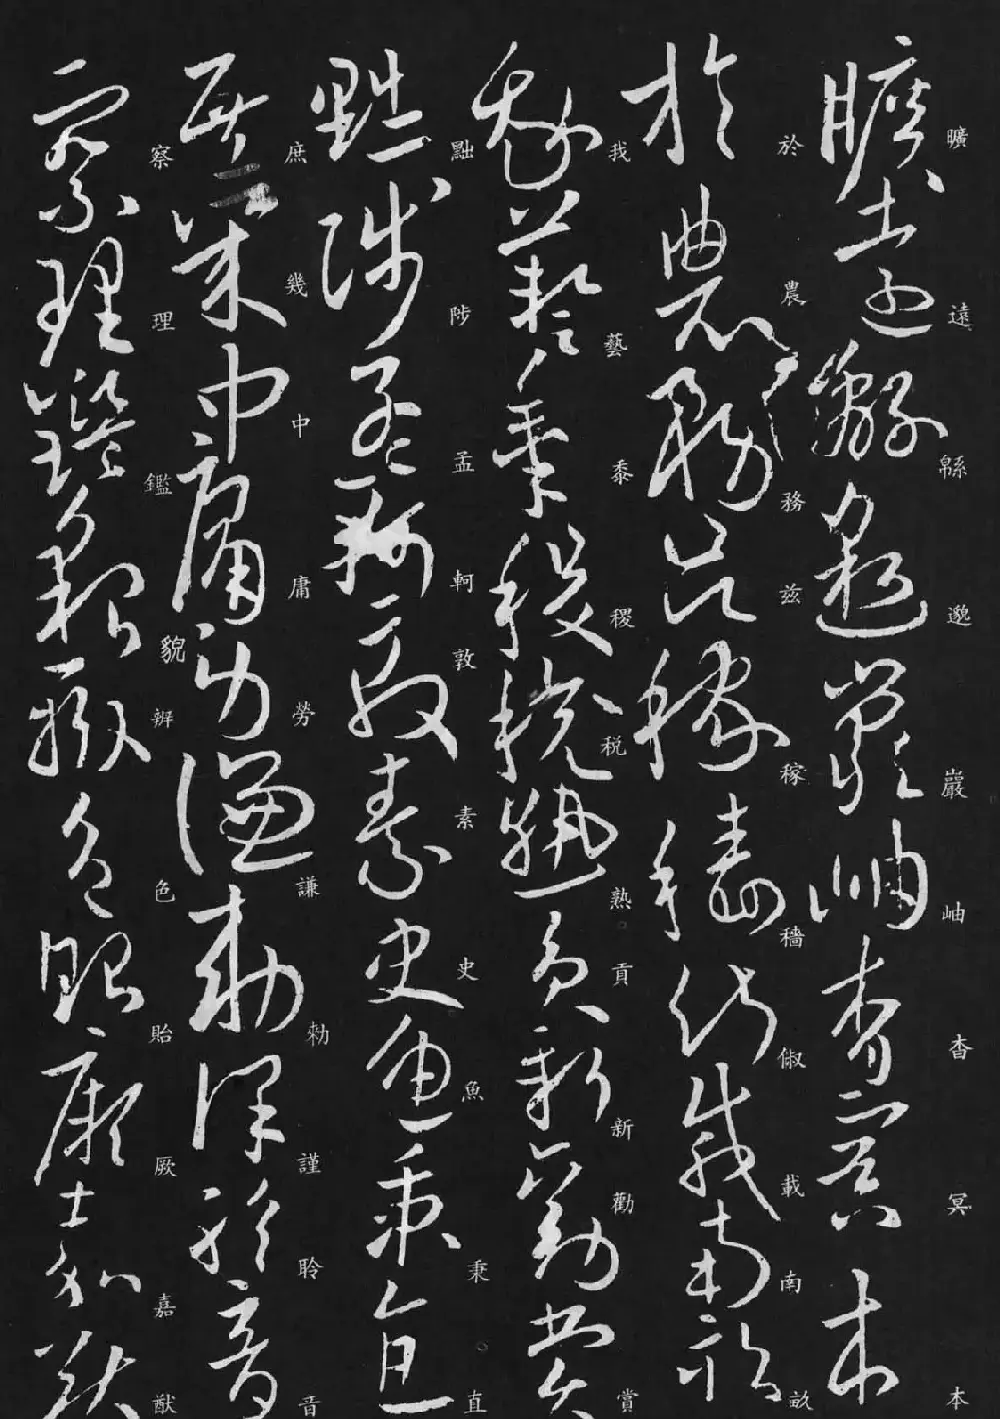 曠遠緜邈巖岫杳冥本
於農務茲稼穡俶載南畝
我藝黍稷稅熟貢新勸賞
黜陟孟軻敦素史魚秉直
庶幾中庸勞謙勑謹聆音
察理鑑貌辨色貽厥嘉猷